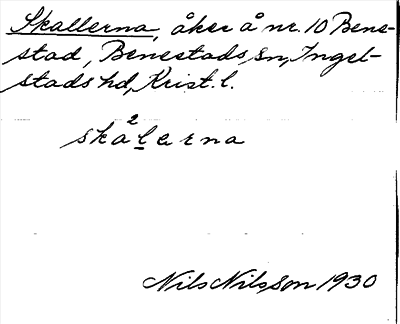 Skallerna, åker å nr. 10 Bene-
stad, Benestads sn, Ingel-
stads hd, Krist. l.
ska²l̲erna
Nils Nilsson 1930